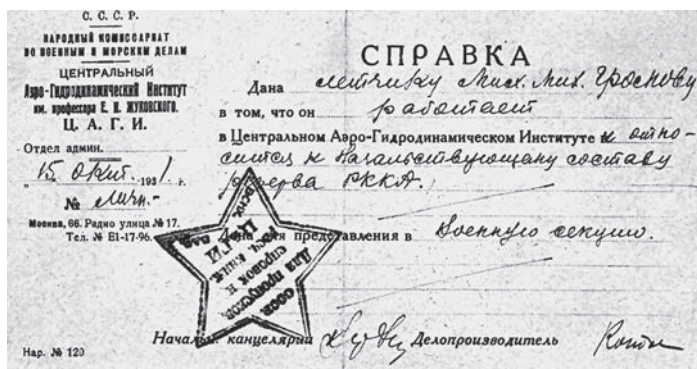 С. С. С. Р.
НАРОДНЫЙ КОМИССАРИАТ
ПО ВОЕННЫМ И МОРСКИМ ДЕЛАМ
ЦЕНТРАЛЬНЫЙ
Аэро-Гидродинамический Институт
им. профессора Е. Н. ЖУКОВСКОГО.
Ц. А. Г. И.
Отдел админ.
"15" Окт. 1931 г.
№ Личн.-
Москва, 66. Радио улица № 17.
Тел. № Е1-17-96.
Нар. № 120
СПРАВКА
Дана летчику Мих. Мих. Громову
в том, что он работает
в Центральном Аэро-Гидродинамическом Институте и отно-
сится к Начальствующему составу
резерва РККА.
Дана для представления в Военную секцию.
СССР
Для пропусков,
справок и
Началь. канцелярии Делопроизводитель